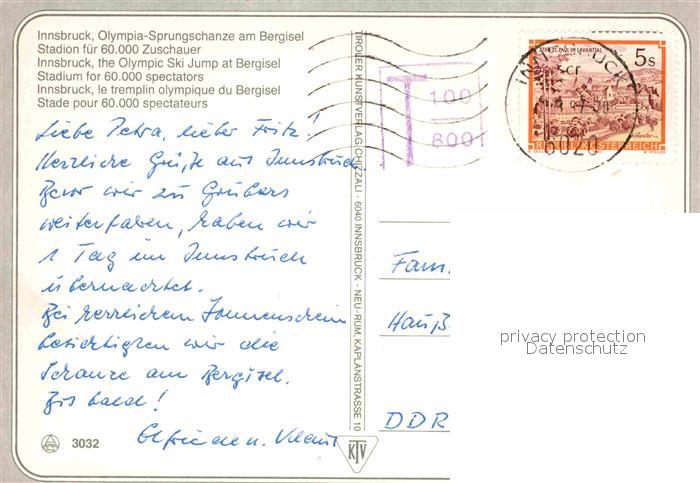 Innsbruck, Olympia-Sprungschanze am Bergisel
Stadion für 60.000 Zuschauer
Innsbruck, the Olympic Ski Jump at Bergisel
Stadium for 60.000 spectators
Innsbruck, le tremplin olympique du Bergisel
Stade pour 60.000 spectateurs
Liebe Petra, lieber Fritz!
Herzliche Grüße aus Innsbruck.
Bevor wir zu Grubers
weiterfahren, haben wir
1 Tag in Innsbruck
übernachtet.
Bei herrlichem Sonnenschein
besichtigten wir die
Schanze am Bergisel.
Bis bald!
Elfriede u. Klaus
3032
TIROLER KUNSTVERLAG CHIZZALI · 6040 INNSBRUCK - NEU-RUM, KAPLANSTRASSE 10
KTV
T 100
600
STIFT ST. PAUL IM LAVANTTAL
5 S
REPUBLIK ÖSTERREICH
INNSBRUCK
6020
Fam.
Hauß
DDR
privacy protection
Datenschutz